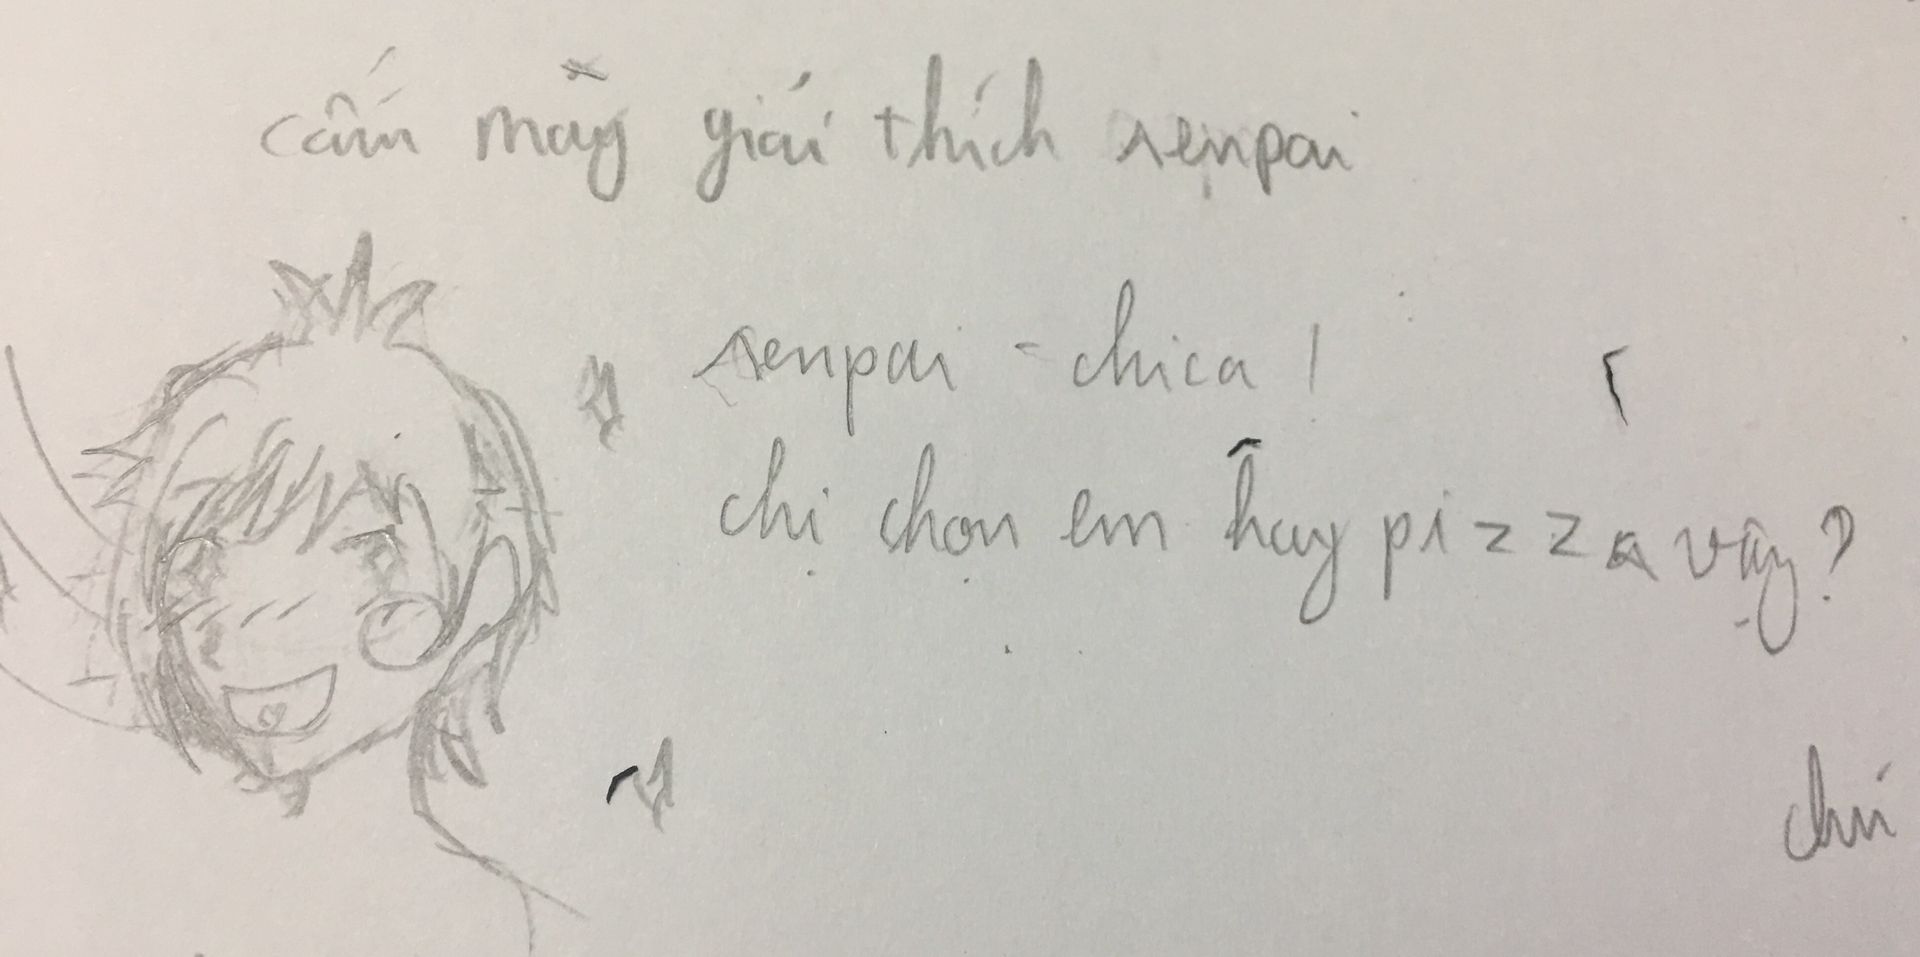 cấm mày giải thích senpai
senpai - chica !
chị chọn em hay pizza vậy ?